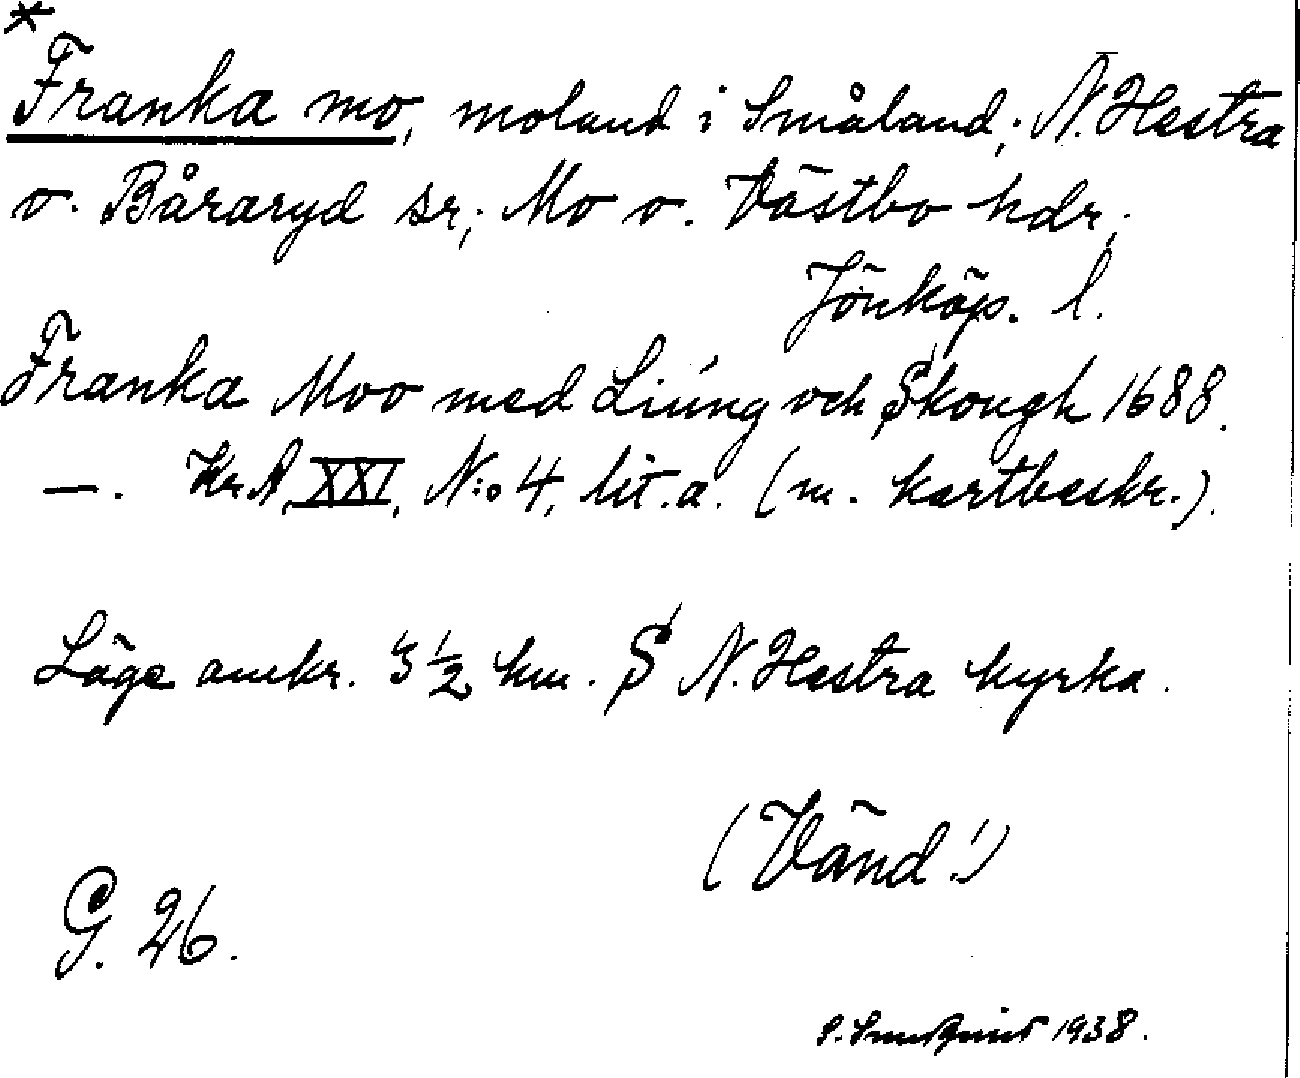 *
Franka mo, moland i Småland; N. Hestra
o. Båraryd sr; Mo o. Västbo hdr;
Jönköp. l.
Franka Moo med Liúng och Skough 1688.
—. Kr.A. XXI, N:o 4, lit. a. (m. kartbeskr.).
Läge omkr. 3 ½ km. S N. Hestra kyrka.
(Vänd!)
G. 26.
1938.